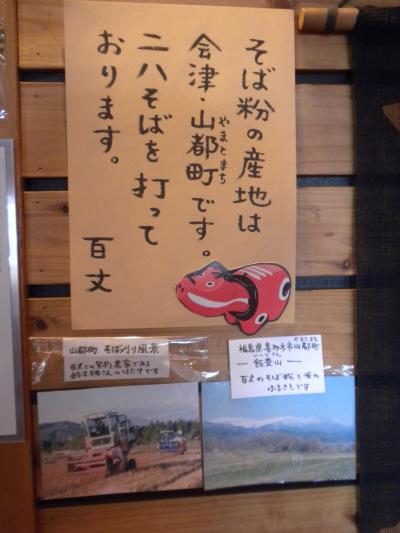 そば粉の産地は
会津・山都町です。
やまとまち
二八そばを打って
おります。
百丈
山都町 そば刈り風景
百丈との契約農家である
さんのはたけです
福島県喜多方市山都町
やまとまち
いいでさん
― 飯豊山 ―
百丈のそば粉と水の
ふるさとです